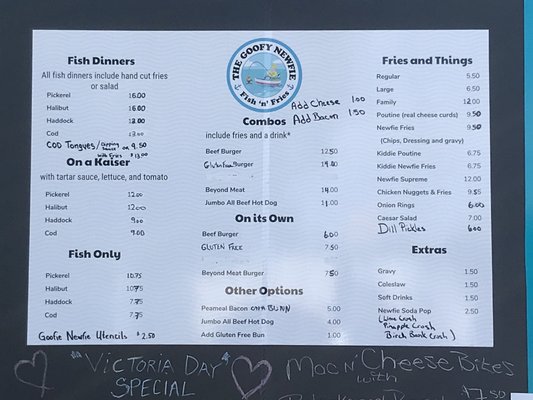 THE GOOFY NEWFIE
Fish 'n' Fries
Fish Dinners
All fish dinners include hand cut fries
or salad
Pickerel 16.00
Halibut 16.00
Haddock 13.00
Cod 13.00
COD TONGUES/ Dipping Sauce on 9.50
with Fries $13.00
On a Kaiser
with tartar sauce, lettuce, and tomato
Pickerel 12.00
Halibut 12.00
Haddock 9.00
Cod 9.00
Fish Only
Pickerel 10.75
Halibut 10.75
Haddock 7.75
Cod 7.75
Goofie Newfie Utencils $2.50
Add Cheese 1.00
Add Bacon 1.50
Combos
include fries and a drink*
Beef Burger 12.50
Gluten Free Burger
Beyond Meat 14.00
Jumbo All Beef Hot Dog 11.00
On its Own
Beef Burger 6.00
GLUTEN FREE 7.50
Beyond Meat Burger 7.50
Other Options
Peameal Bacon ON A BUNN 5.00
Jumbo All Beef Hot Dog 4.00
Add Gluten Free Bun 1.00
Fries and Things
Regular 5.50
Large 6.50
Family 12.00
Poutine (real cheese curds) 9.50
Newfie Fries 9.50
(Chips, Dressing and gravy)
Kiddie Poutine 6.75
Kiddie Newfie Fries 6.75
Newfie Supreme 12.00
Chicken Nuggets & Fries 9.95
Onion Rings 6.00
Caesar Salad 7.00
Dill Pickles 6.00
Extras
Gravy 1.50
Coleslaw 1.50
Soft Drinks 1.50
Newfie Soda Pop 2.50
(Lime Crush
Pineapple Crush
Birch Bark Crush)
"VICTORIA DAY"
SPECIAL
Mac N' Cheese Bites
with
$7.50